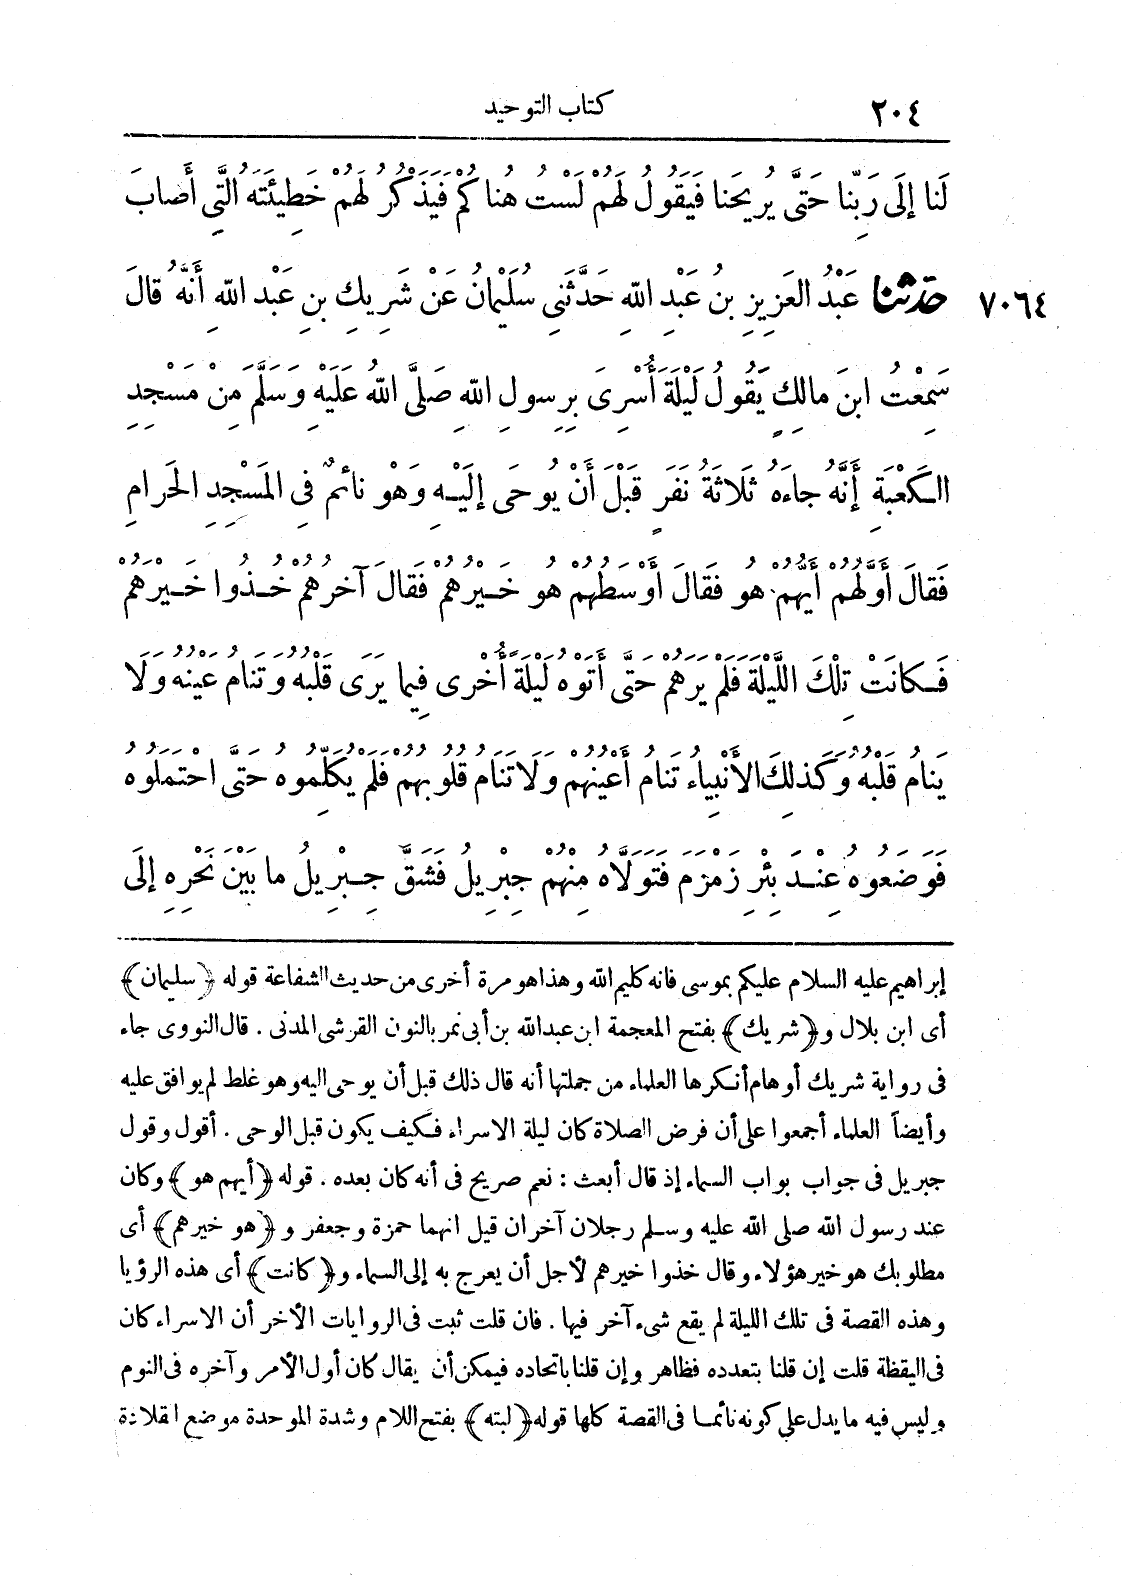 ٢٠٤ كتاب التوحيد
لَنَا إِلَى رَبِّنَا حَتَّى يُرِيحَنَا فَيَقُولُ لَهُمْ لَسْتُ هُنَاكُمْ فَيَذْكُرُ لَهُمْ خَطِيئَتَهُ الَّتِي أَصَابَ
٧٠٦٤ حَدَّثَنَا عَبْدُ الْعَزِيزِ بْنُ عَبْدِ اللهِ حَدَّثَنِي سُلَيْمَانُ عَنْ شَرِيكِ بْنِ عَبْدِ اللهِ أَنَّهُ قَالَ
سَمِعْتُ ابْنَ مَالِكٍ يَقُولُ لَيْلَةَ أُسْرِيَ بِرَسُولِ اللهِ صَلَّى اللهُ عَلَيْهِ وَسَلَّمَ مِنْ مَسْجِدِ
الْكَعْبَةِ إِنَّهُ جَاءَهُ ثَلَاثَةُ نَفَرٍ قَبْلَ أَنْ يُوحَى إِلَيْهِ وَهْوَ نَائِمٌ فِي الْمَسْجِدِ الْحَرَامِ
فَقَالَ أَوَّلُهُمْ أَيُّهُمْ هُوَ فَقَالَ أَوْسَطُهُمْ هُوَ خَيْرُهُمْ فَقَالَ آخِرُهُمْ خُذُوا خَيْرَهُمْ
فَكَانَتْ تِلْكَ اللَّيْلَةَ فَلَمْ يَرَهُمْ حَتَّى أَتَوْهُ لَيْلَةً أُخْرَى فِيمَا يَرَى قَلْبُهُ وَتَنَامُ عَيْنُهُ وَلَا
يَنَامُ قَلْبُهُ وَكَذَلِكَ الْأَنْبِيَاءُ تَنَامُ أَعْيُنُهُمْ وَلَا تَنَامُ قُلُوبُهُمْ فَلَمْ يُكَلِّمُوهُ حَتَّى احْتَمَلُوهُ
فَوَضَعُوهُ عِنْدَ بِئْرِ زَمْزَمَ فَتَوَلَّاهُ مِنْهُمْ جِبْرِيلُ فَشَقَّ جِبْرِيلُ مَا بَيْنَ نَحْرِهِ إِلَى
إبراهيم عليه السلام عليكم بموسى فانه كليم الله وهذا هو مرة أخرى من حديث الشفاعة قوله ﴿سليمان﴾
أى ابن بلال و ﴿شريك﴾ بفتح المعجمة ابن عبد الله بن أبى نمر بالنون القرشى المدنى . قال النووى جاء
فى رواية شريك أوهام أنكرها العلماء من جملتها أنه قال ذلك قبل أن يوحى اليه وهو غلط لم يوافق عليه
وأيضاً العلماء أجمعوا على أن فرض الصلاة كان ليلة الاسراء فكيف يكون قبل الوحى . أقول وقول
جبريل فى جواب بواب السماء إذ قال أبعث : نعم صريح فى أنه كان بعده . قوله ﴿أيهم هو﴾ وكان
عند رسول الله صلى الله عليه وسلم رجلان آخران قيل انهما حمزة وجعفر و ﴿هو خيرهم﴾ أى
مطلوبك هو خير هؤلاء وقال خذوا خيرهم لأجل أن يعرج به إلى السماء و ﴿كانت﴾ أى هذه الرؤيا
وهذه القصة فى تلك الليلة لم يقع شىء آخر فيها . فان قلت ثبت فى الروايات الأخر أن الاسراء كان
فى اليقظة قلت إن قلنا بتعدده فظاهر وإن قلنا باتحاده فيمكن أن يقال كان أول الأمر وآخره فى النوم
وليس فيه ما يدل على كونه نائما فى القصة كلها قوله ﴿لبته﴾ بفتح اللام وشدة الموحدة موضع القلادة